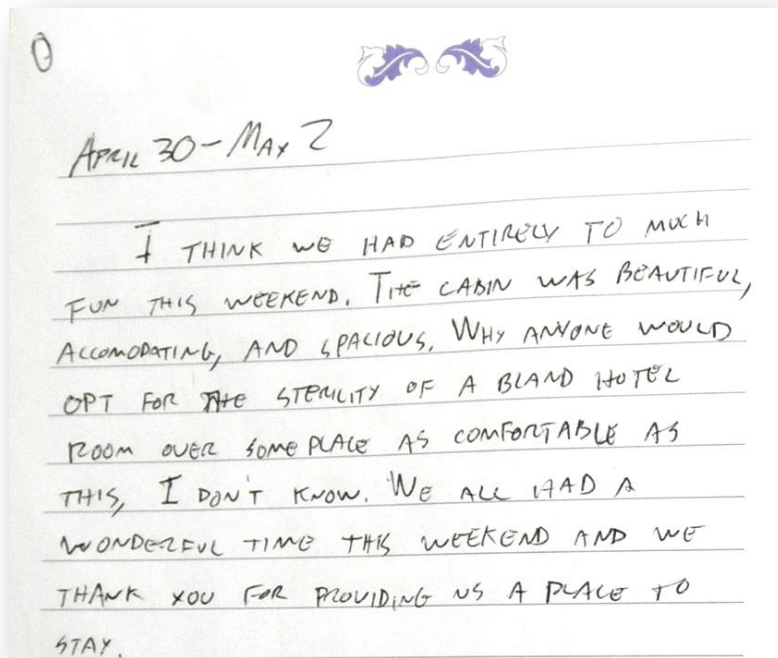 April 30 - May 2
I THINK WE HAD ENTIRELY TO MUCH
FUN THIS WEEKEND. THE CABIN WAS BEAUTIFUL,
ACCOMODATING, AND SPACIOUS. WHY ANYONE WOULD
OPT FOR THE STERILITY OF A BLAND HOTEL
ROOM OVER SOMEPLACE AS COMFORTABLE AS
THIS, I DON'T KNOW. WE ALL HAD A
WONDERFUL TIME THIS WEEKEND AND WE
THANK YOU FOR PROVIDING US A PLACE TO
STAY.